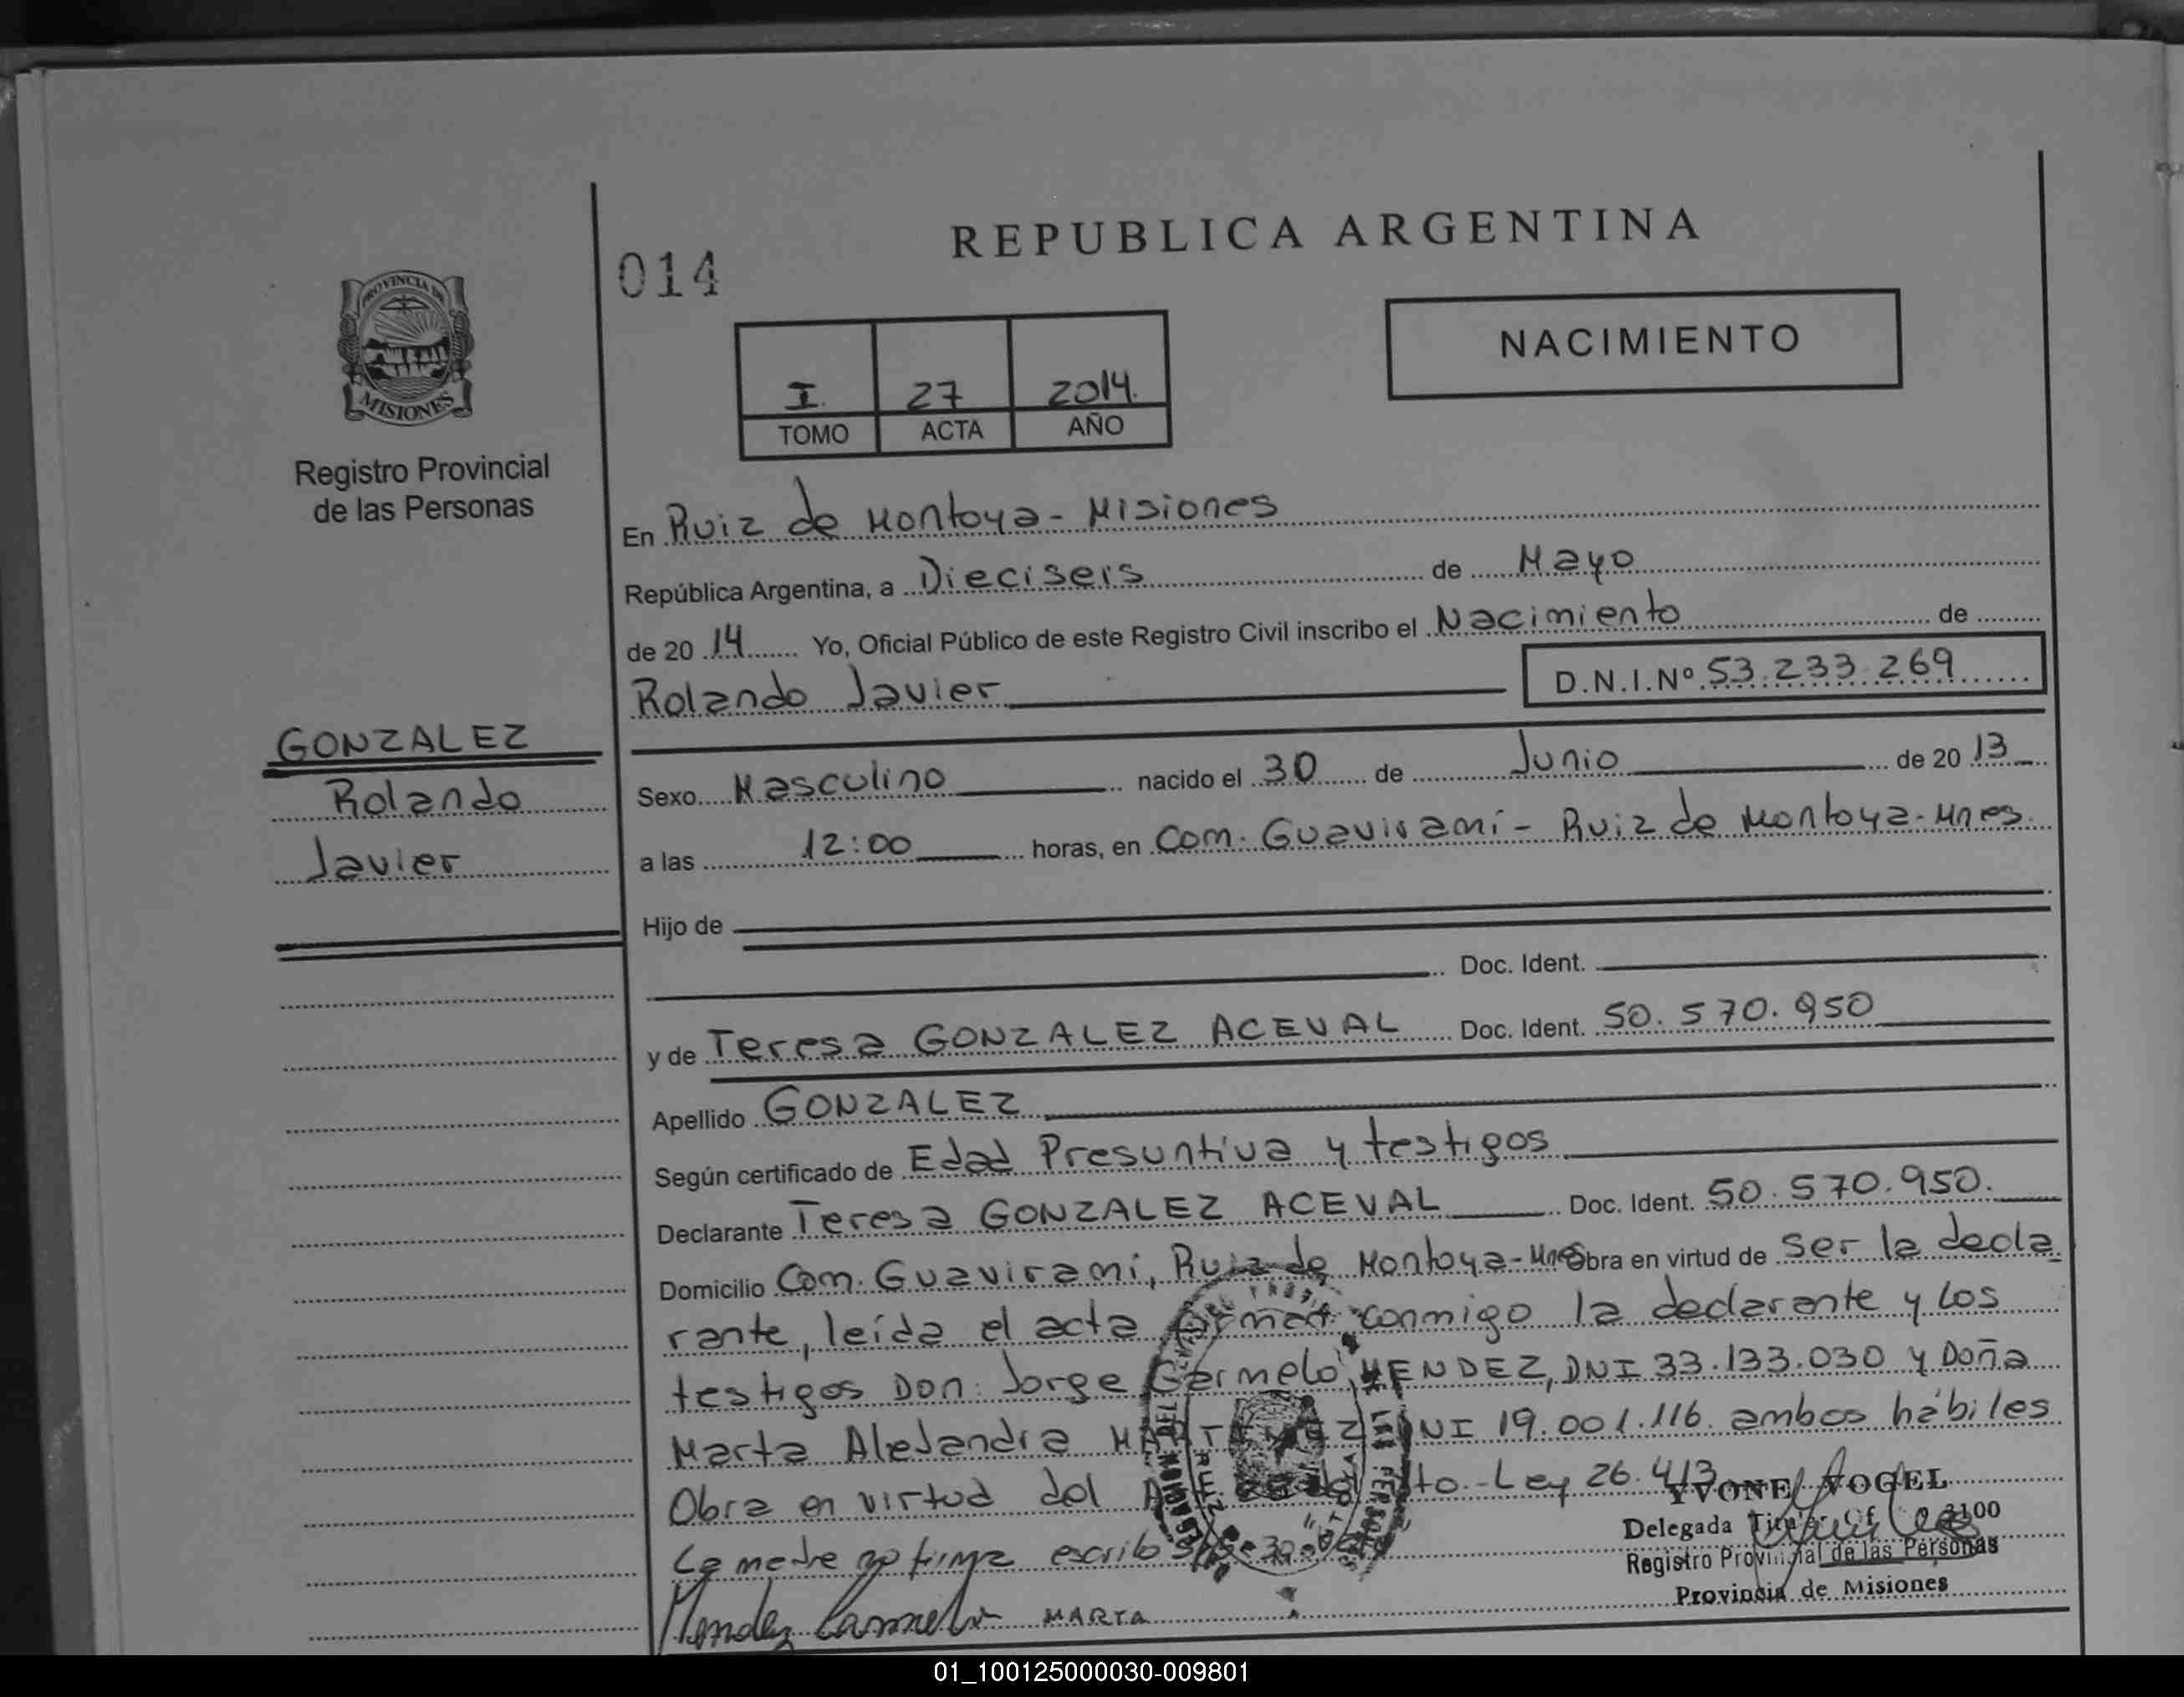 REPUBLICA ARGENTINA
014
PROVINCIA DE
MISIONES
Registro Provincial
de las Personas
NACIMIENTO
I. 27 2014.
TOMO ACTA AÑO
En Ruiz de Montoya - Misiones
República Argentina, a Dieciseis de Mayo
de 20 14 Yo, Oficial Público de este Registro Civil inscribo el Nacimiento de
Rolando Javier D.N.I.Nº 53.233.269
GONZALEZ
Rolando
Javier
Sexo Masculino nacido el 30 de Junio de 20 13
a las 12:00 horas, en Com. Guavirami - Ruiz de Montoya - Mnes.
Hijo de
Doc. Ident.
y de Teresa GONZALEZ ACEVAL Doc. Ident. 50.570.950
Apellido GONZALEZ
Según certificado de Edad Presuntiva y testigos
Declarante Teresa GONZALEZ ACEVAL Doc. Ident. 50.570.950.
Domicilio Com. Guavirami, Ruiz de Montoya - Mnes Obra en virtud de ser la decla
rante, leída el acta firman conmigo la declarante y los
testigos Don: Jorge Carmelo MENDEZ, DNI 33.133.030 y Doña
Marta Alejandra MARTINEZ DNI 19.001.116 ambos hábiles
Obra en virtud del Ley 26.413
La madre no firma
Mendez Carmelo MARTA
YVONE VOGEL
Delegada Titular Of. 3100
Registro Provincial de las Personas
Provincia de Misiones
01_100125000030-009801